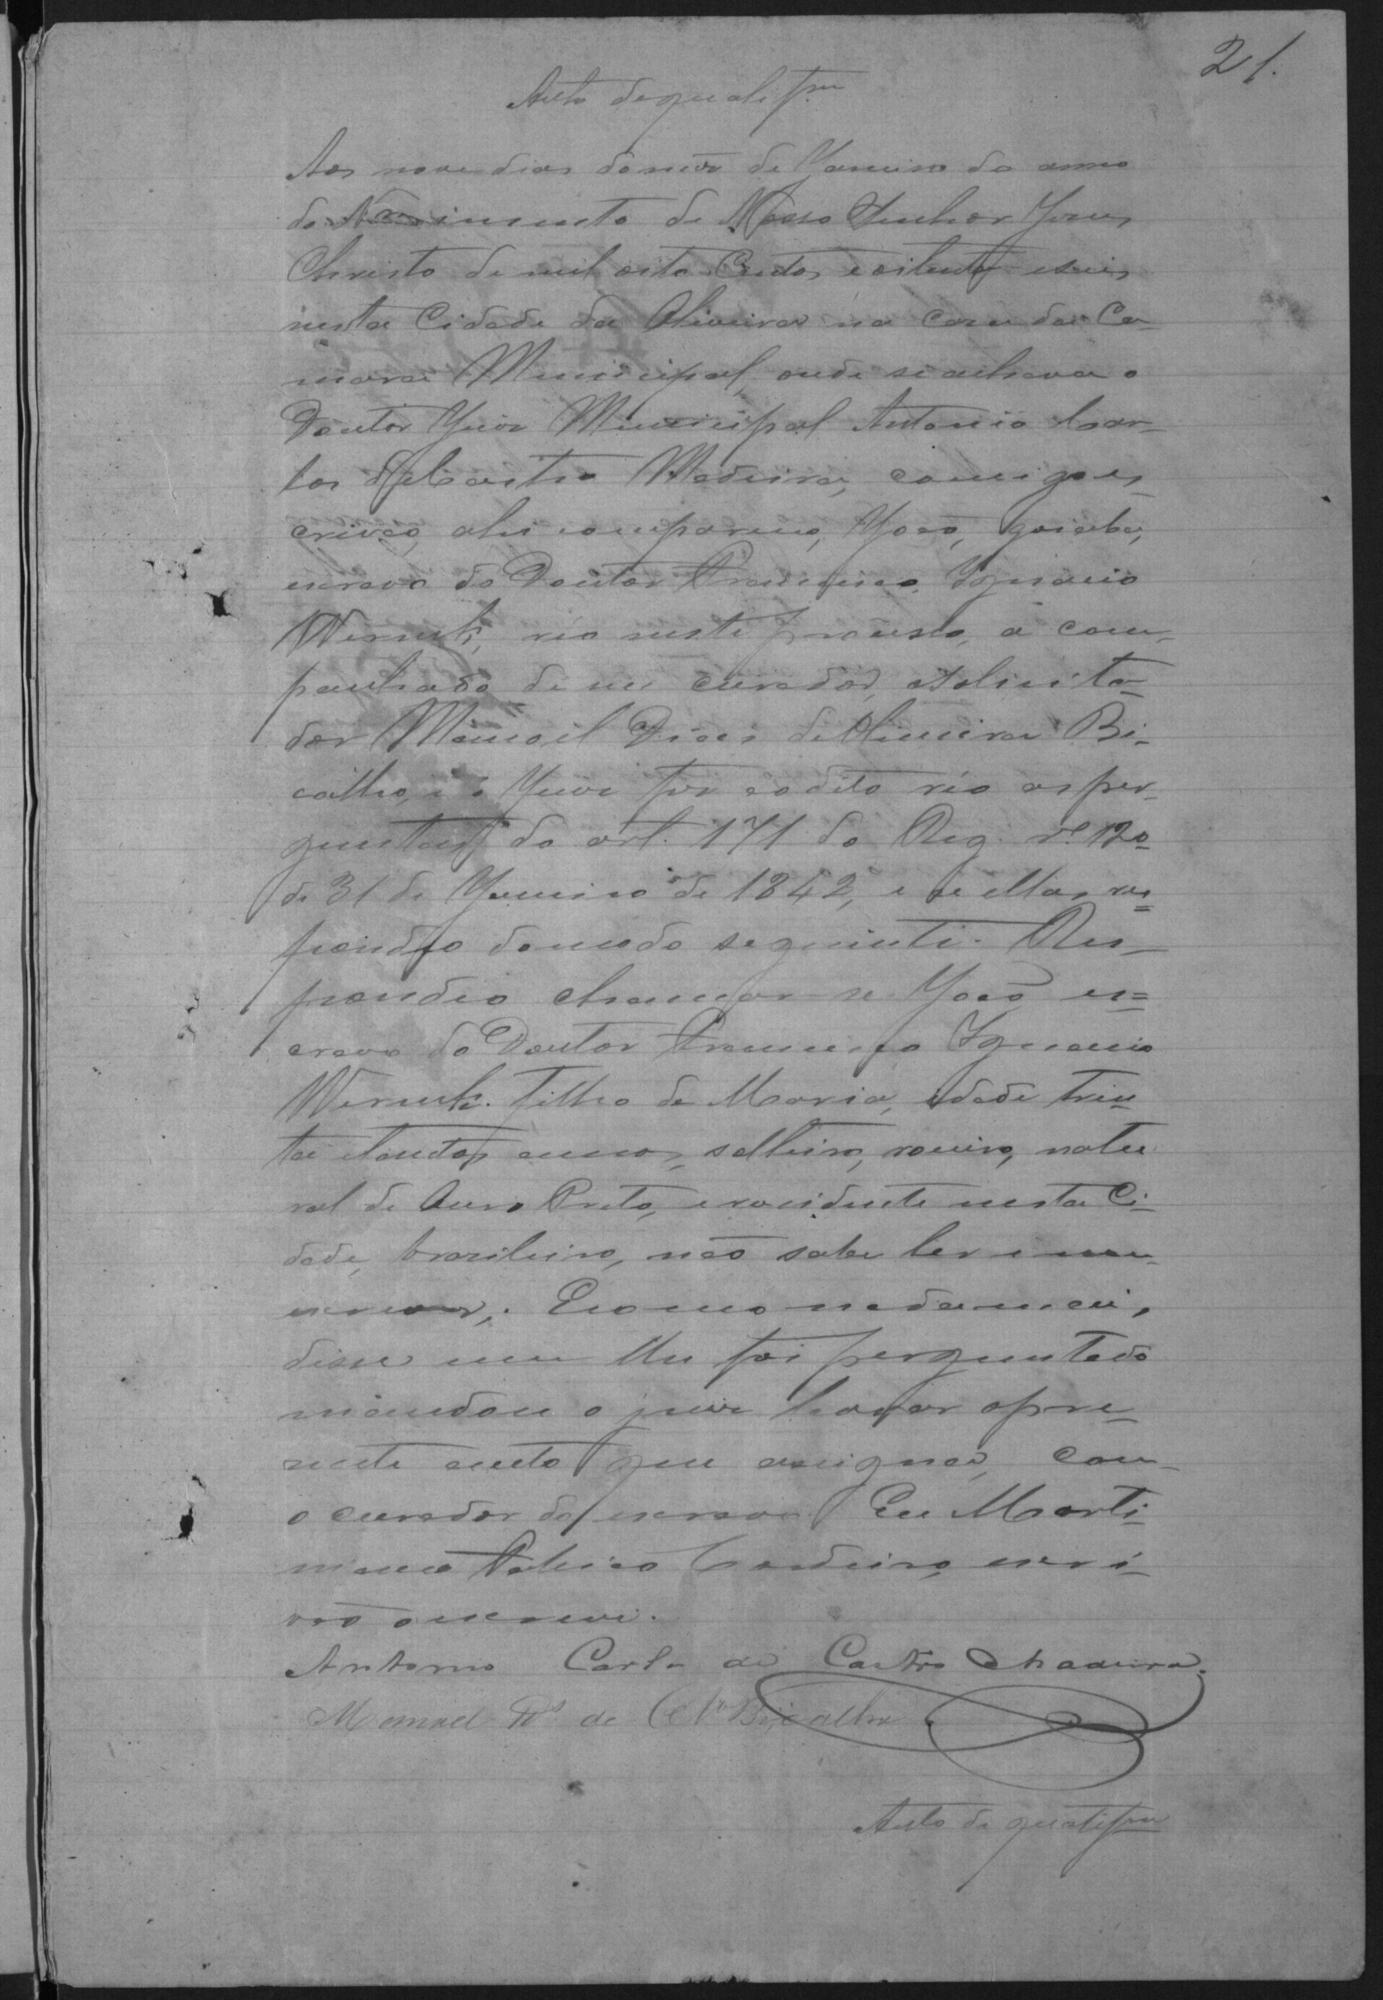 21.
Auto de qualifcam
Aos nove dias do mez de Janeiro do anno
do Nascimento de Nosso Senhor Jesus
Christo de mil oito Centos e oitenta e seis,
nesta Cidade da Oliveira na casa da Ca-
mara Municipal, onde se achava o
Doutor Juiz Municipal Antonio Car-
los de Castro Madeira, comigo es-
crivão, ahi compareceo, João,
escravo do Doutor Francisco Ignacio
Werneck, réo neste processo, a com-
panhado de seu curador, o solicita-
dor Manoel Dias de Oliveira Bi-
calho, e o Juiz fez ao dito réo as per-
guntas do art. 171 do Reg. nº 120
de 31 de Janeiro de 1842, e a ellas res=
pondeo do modo seguinte. Res-
pondeo chamar-se João es=
cravo do Doutor Francisco Ignacio
Werneck. Filho de Maria, idade trin
ta e tantos annos, solteiro, roceiro, natu
ral de Ouro Preto, e rezidente nesta Ci-
dade, brazileiro, não sabe ler e nem
escrever. E como nada mais,
disse nem lhe foi perguntado
mandou o juiz lavrar o pre-
sente auto que assigna, com
o curador do escravo. Eu Marti-
niano Cordeiro, escri-
vão o escrevi.
Antonio Carlos de Castro Madeira.
Manoel Ds de Olra Bicalho.
Auto de qualifcam